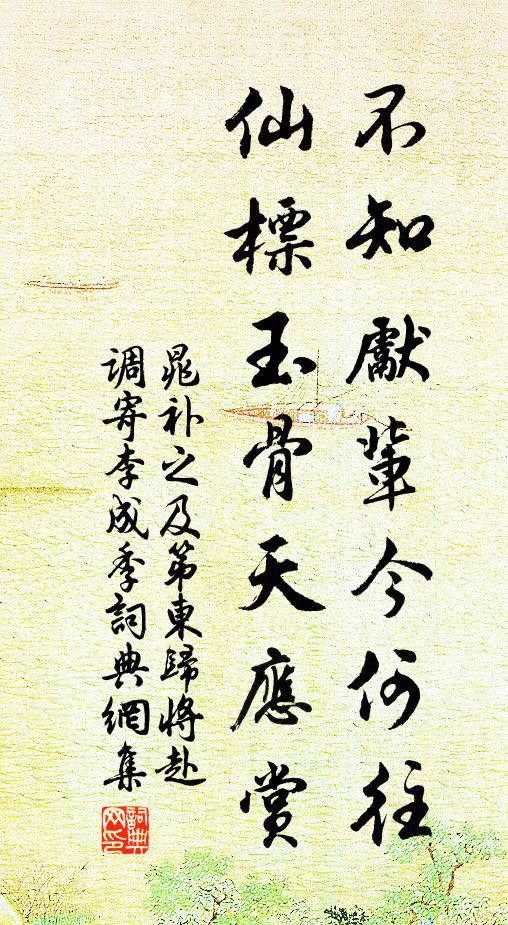 不知獻輩今何往
仙標玉骨天應賞
晁补之及第東歸将赴
調寄李成季詞典網集
詞典网印